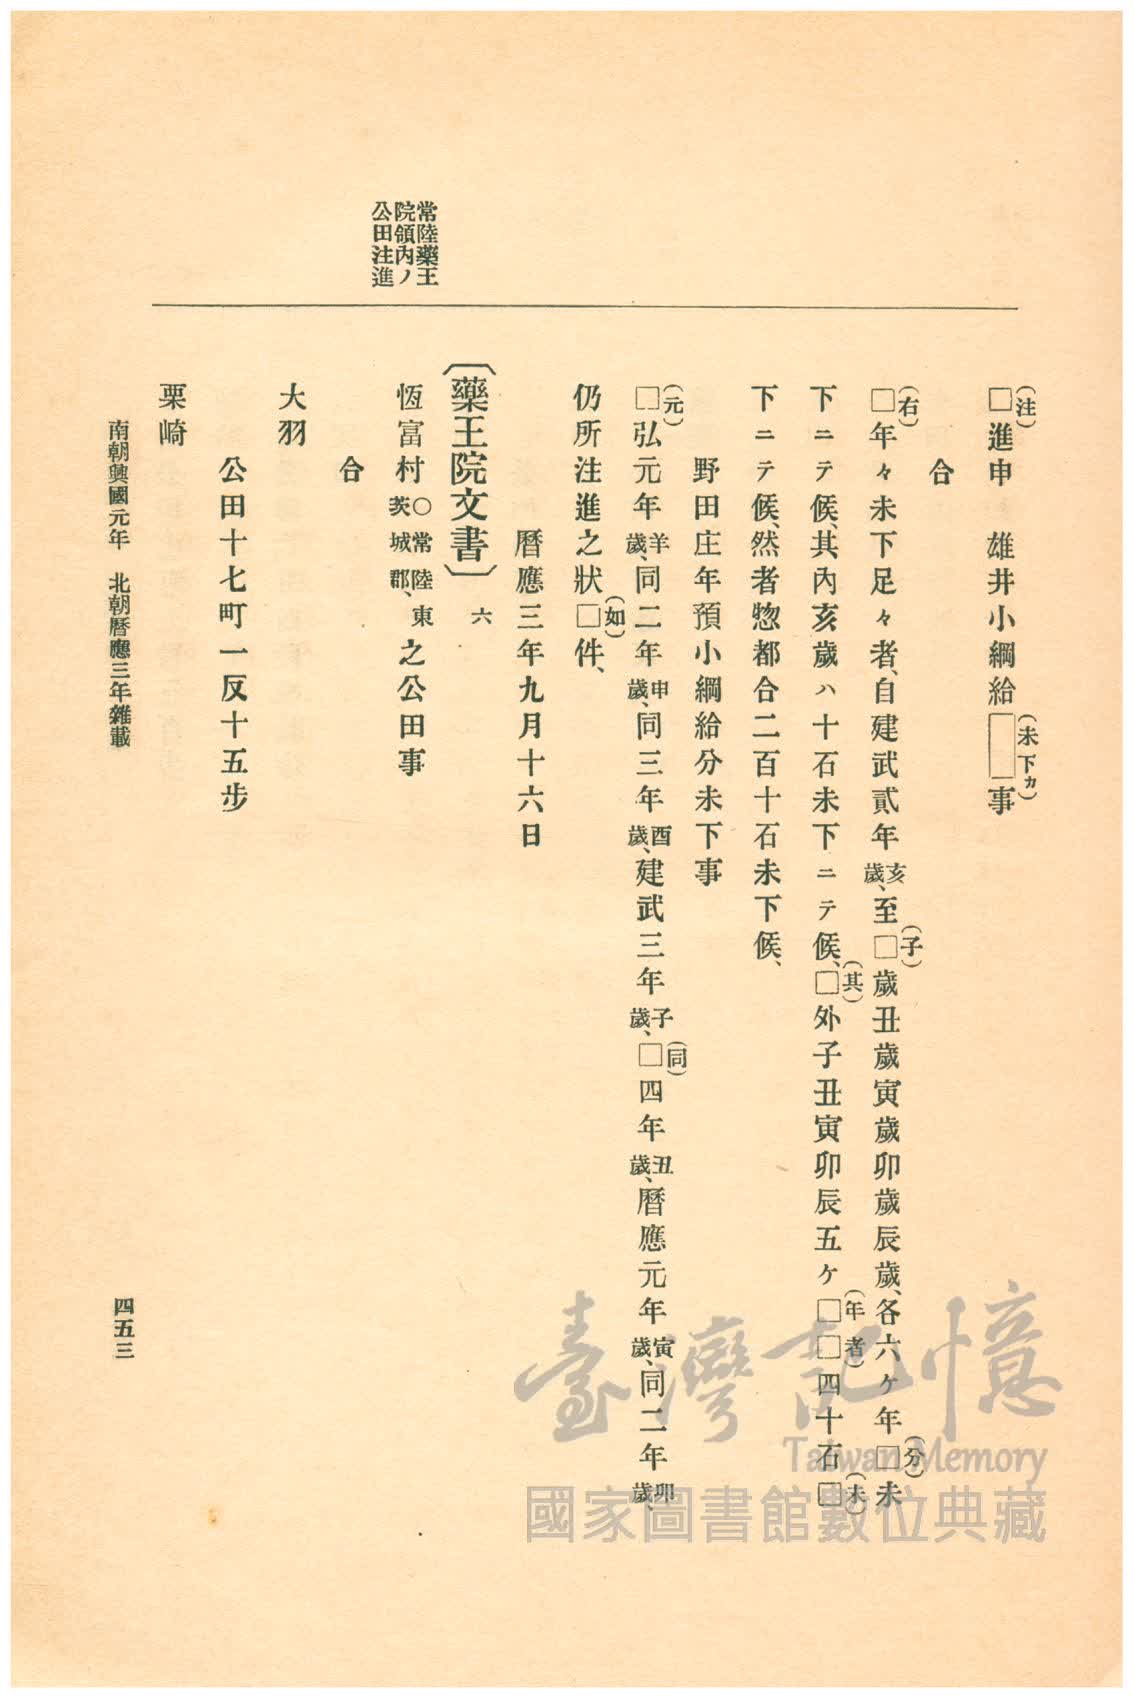 常陸藥王
院領內ノ
公田注進
□(注)進申　雄井小綱給□(未下カ)事
合
□(右)年々未下足々者、自建武貳年亥歲、至□(子)歲丑歲寅歲卯歲辰歲、各六ヶ年□(分)未
下ニテ候、其內亥歲ハ十石未下ニテ候、□(其)外子丑寅卯辰五ヶ□□(年者)四十石□(未)
下ニテ候、然者惣都合二百十石未下候、
野田庄年預小綱給分未下事
□(元)弘元年羊歲、同二年申歲、同三年酉歲、建武三年子歲、□(同)四年丑歲、曆應元年寅歲、同二年卯歲、
仍所注進之狀□(如)件、
曆應三年九月十六日
〔藥王院文書〕六
恆富村○常陸東茨城郡、之公田事
合
大羽
公田十七町一反十五步
栗崎
南朝興國元年　北朝曆應三年雜載
四五三
臺灣記憶
Taiwan Memory
國家圖書館數位典藏